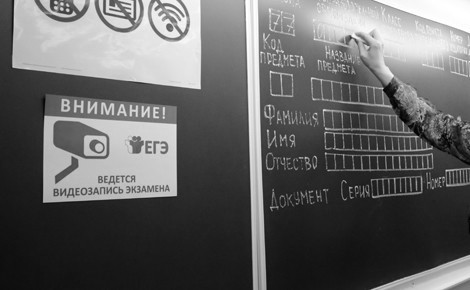 ВНИМАНИЕ!
ЕГЭ
ВЕДЕТСЯ
ВИДЕОЗАПИСЬ ЭКЗАМЕНА
77
Класс
Код
предмета
Название
предмета
Фамилия
Имя
Отчество
Документ Серия Номер